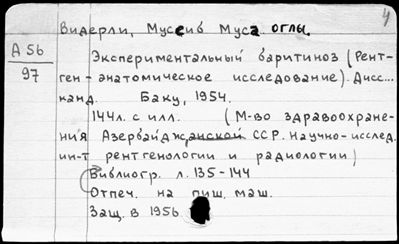 4
Видерли, Мусеиб Муса оглы.
А 56
97
Экспериментальный баритиноз (Рент-
ген-анатомическое исследование). Дисс...
канд. Баку, 1954.
144л. с илл. (М-во здравоохране-
ния Азербайджанской ССР. Научно-исслед.
ин-т рентгенологии и радиологии)
Библиогр. л. 135-144
Отпеч. на пиш. маш.
Защ. в 1956